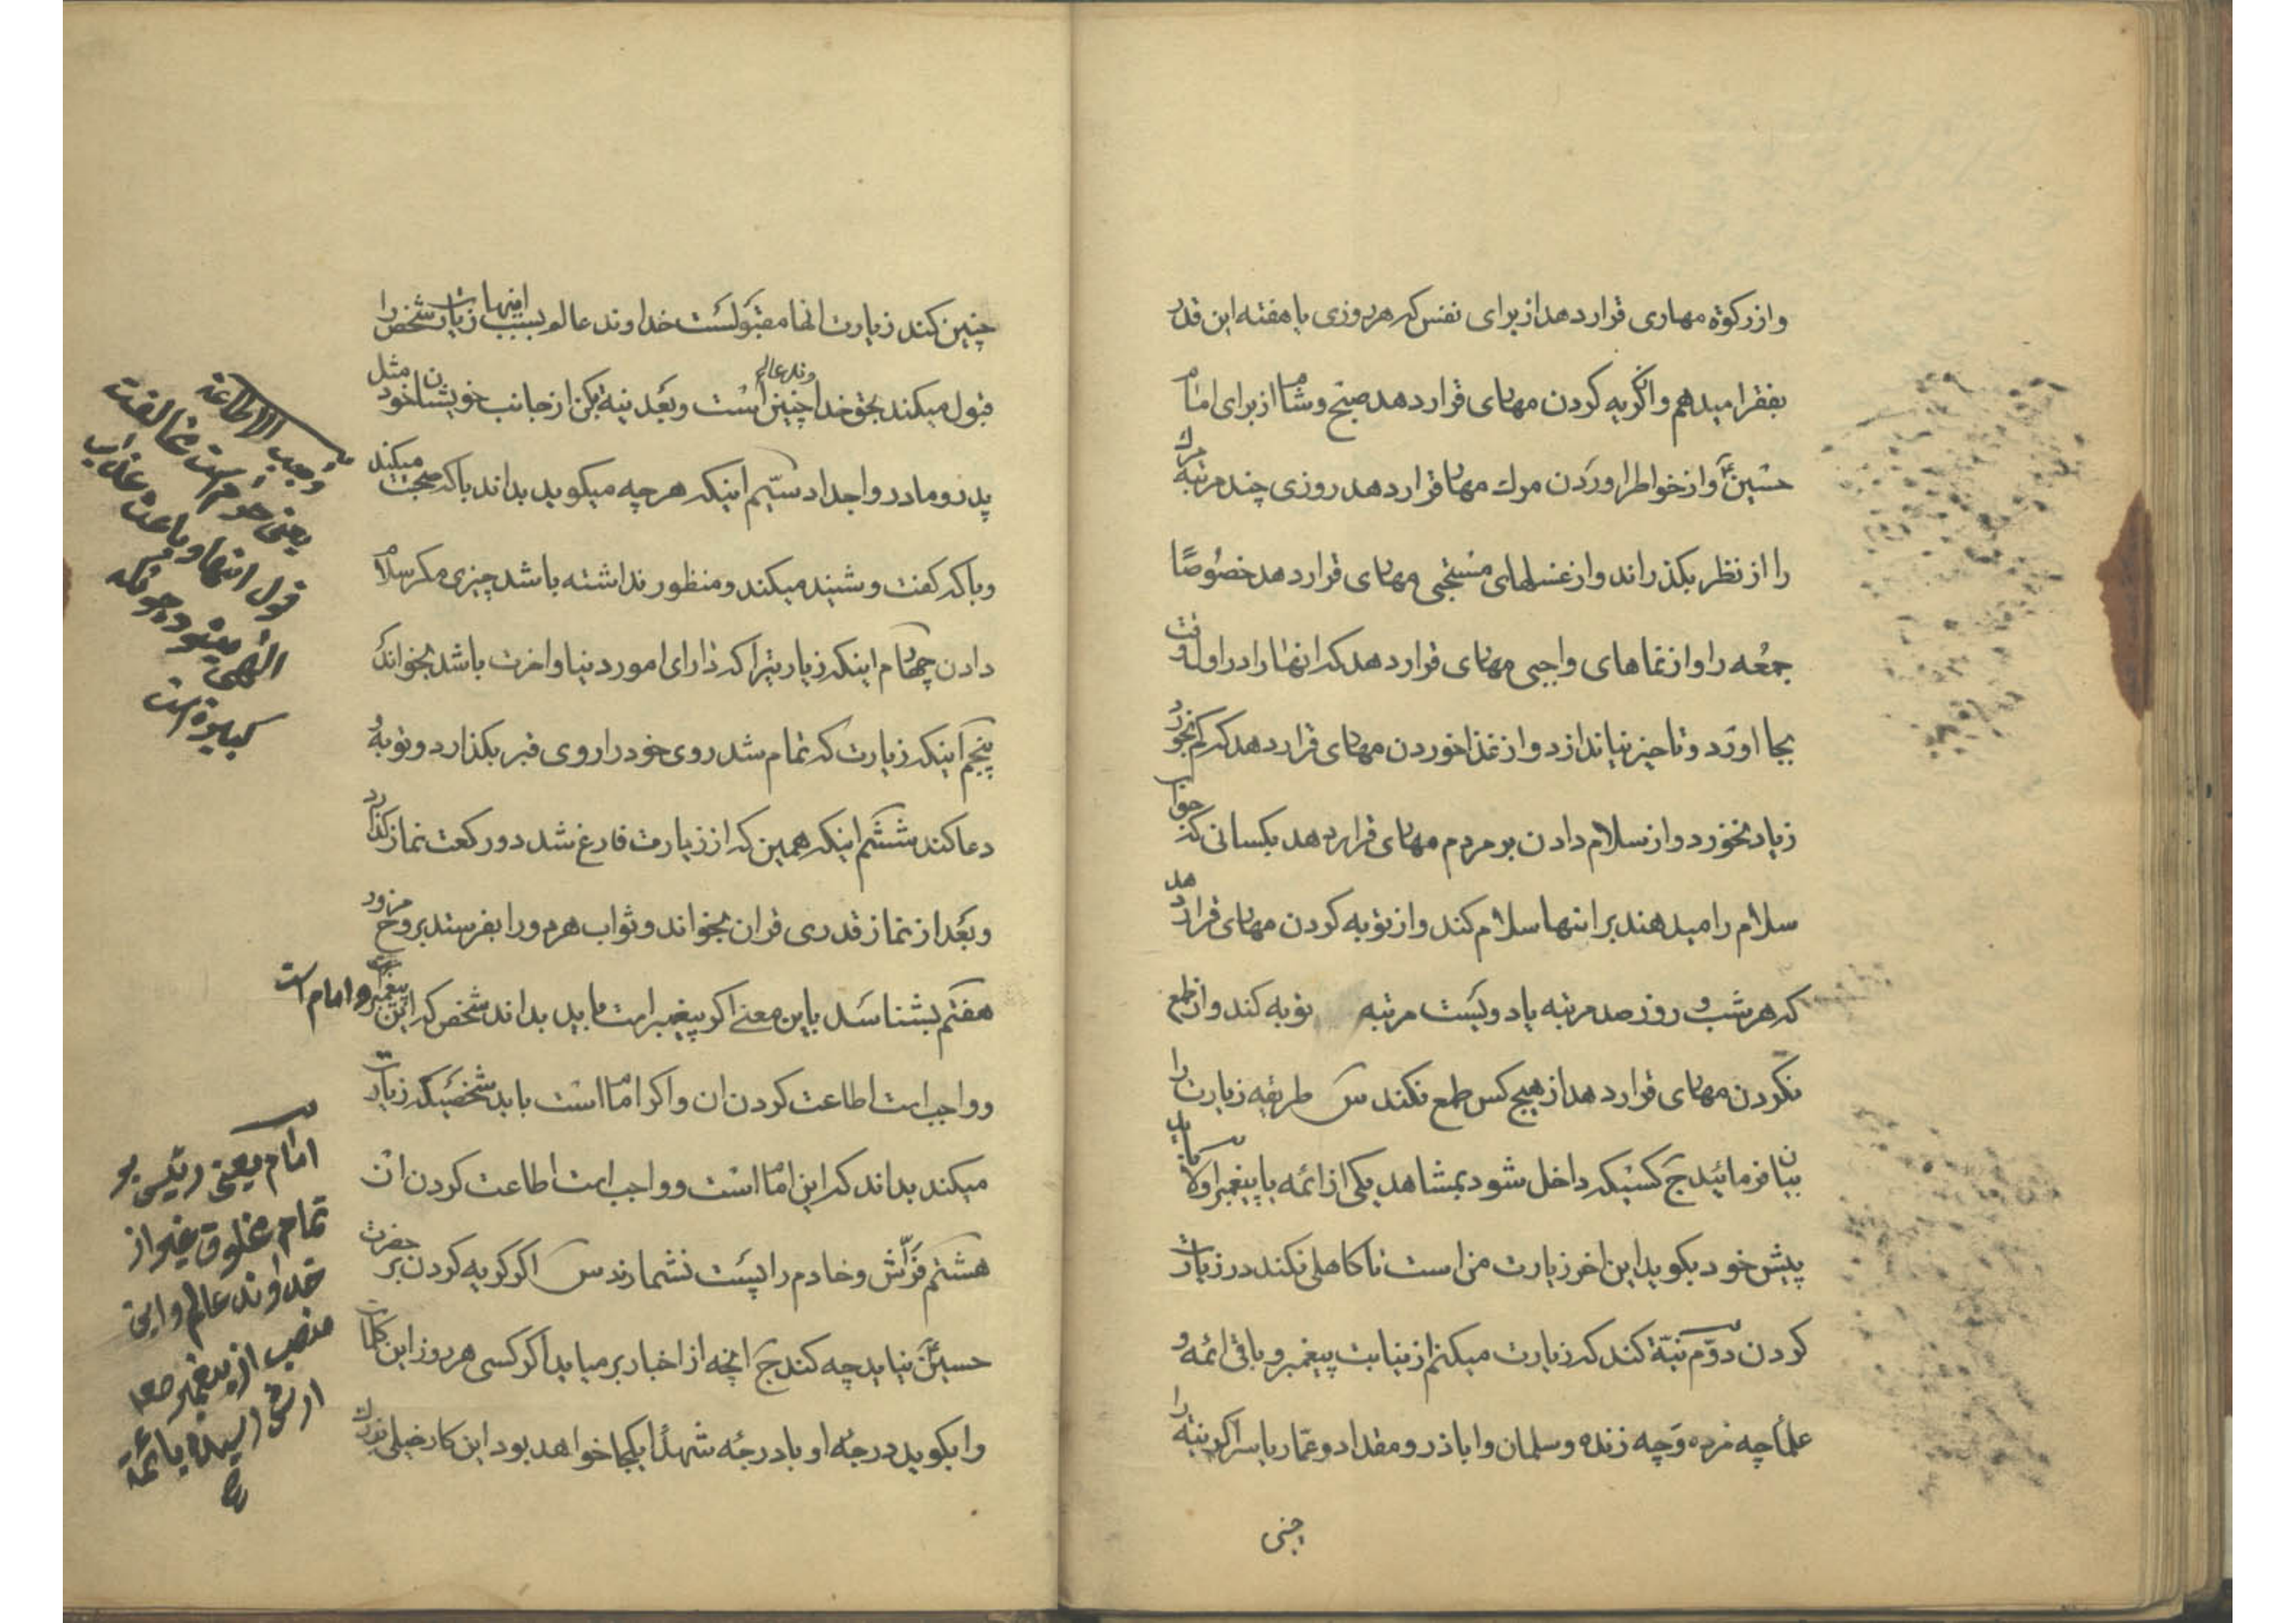 واز زکوة مهاری قرار دهد از برای نفس که هر روزی یا هفته این قدر
بفقرا میدهم و از گریه کردن مهاری قرار دهد صبح و شام از برای امام
حسین ع و از خواطر اوردن مرك مهار قرار دهد روزی چند مرتبه مرك
را از نظر بکذراند و از غسلهای مستحبی مهاری قرار دهد خصوصًا
جمعه را و از نمازهای واجبی مهاری قرار دهد که انها را در اول وقت
بجا اورد و تاخیر نیاندازد و از غذا خوردن مهاری قرار دهد که کم بخورد
زیاد نخورد و از سلام دادن بر مردم مهاری قرار دهد بکسانی که جواب
سلام را میدهند بر اینها سلام کند و از توبه کردن مهاری قرار دهد
که هر شب و روز صد مرتبه یا دویست مرتبه توبه کند و از طمع
نکردن مهاری قرار دهد از هیچ کس طمع نکند س طریقه زیارت را
بیان فرمائید ج کسیکه داخل شود بمشاهد یکی از ائمه یا پیغمبر اولا باید
پیش خود بکوید این اخر زیارت من است تا کاهلی نکند در زیارت
کردن دوّم نیّة کند که زیارت میکنم از نیابت پیغمبر و باقی ائمه و
علما چه مرده و چه زنده و سلمان و اباذر و مقداد و عمّار یاسر اکر نیّه را
چنین کند زیارت انها مقبولست خداوند عالم بسبب اینها زیارت شخص را
قبول میکند بحق خداوند عالم چنین است و بعد نیه بکن از جانب خویشان خود مثل
پدر و مادر و اجداد سیّم اینکه هر چه میکوید بداند با که صحبت میکند
و با که کفت و شنید میکند و منظور نداشته باشد چیزی مکر سلام
دادن چهارم اینکه زیارتیرا که دارای امور دنیا و اخرت باشد بخواند
پنجم اینکه زیارت که تمام شد روی خود را روی قبر بکذارد و توبه و
دعا کند ششم اینکه همین که از زیارت فارغ شد دو رکعت نماز کذارد
و بعد از نماز قدری قران بخواند و ثواب هر مور را بفرستد بروح مزور
هفتم بشناسد باین معنی اکر پیغمبر است باید بداند شخص که این پیغمبر است و امام است
و واجب است اطاعت کردن ان و اکر امام است باید شخصیکه زیارت
میکند بداند که این امام است و واجب است اطاعت کردن ان
هشتم فرّاش و خادم را پست نشمارند س اکر کریه کردن بر حضرت
حسین ع نیاید چه کند ج انچه از اخبار بر میاید اکر کسی هر روز این کلمات
را بکوید درجه او با درجه شهدا یکجا خواهد بود این کار خیلی بزرك
چنی
وجب الاطاعة
یعنی حرام است مخالفت
قول اینها و باعث عذاب
الهی میشود چونکه
کبیره است
امام یعنی رئیس بر
تمام مخلوق غیر از
خداوند عالم و این
منصب از پیغمبر صع
ارث رسیده بائمة
ع